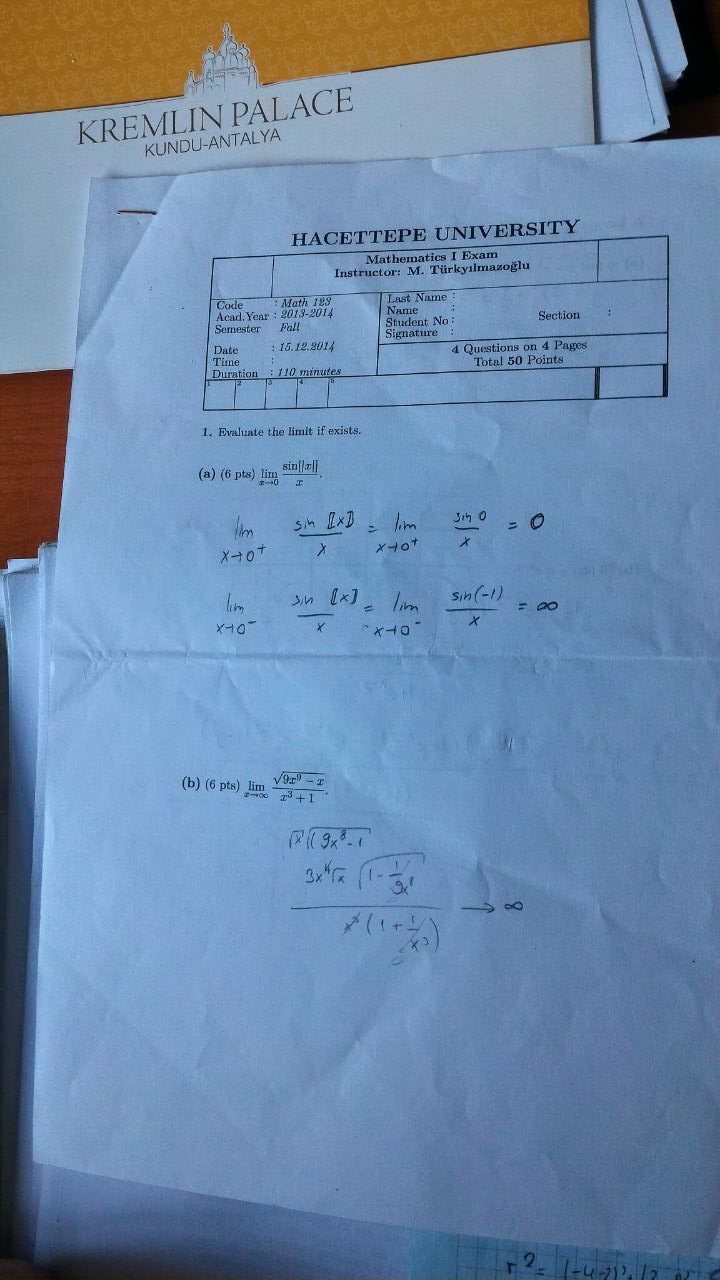 KREMLIN PALACE
KUNDU-ANTALYA
HACETTEPE UNIVERSITY
Mathematics I Exam
Instructor: M. Türkyılmazoğlu
Code : Math 123
Acad.Year : 2013-2014
Semester Fall
Date : 15.12.2014
Time :
Duration : 110 minutes
Last Name :
Name :
Student No :
Signature :
Section :
4 Questions on 4 Pages
Total 50 Points
1 2 3 4 5
1. Evaluate the limit if exists.
(a) (6 pts) lim x→0 sin[|x|] / x.
lim x→0⁺ sin ⟦x⟧ / x = lim x→0⁺ sin 0 / x = 0
lim x→0⁻ sin ⟦x⟧ / x = lim x→0⁻ sin(-1) / x = ∞
(b) (6 pts) lim x→∞ √(9x⁹ − x) / (x³ + 1).
√x √(9x⁸ - 1)
3x⁴√x √(1 - 1/9x⁸)
x³ (1 + 1/x³) → ∞
r² =